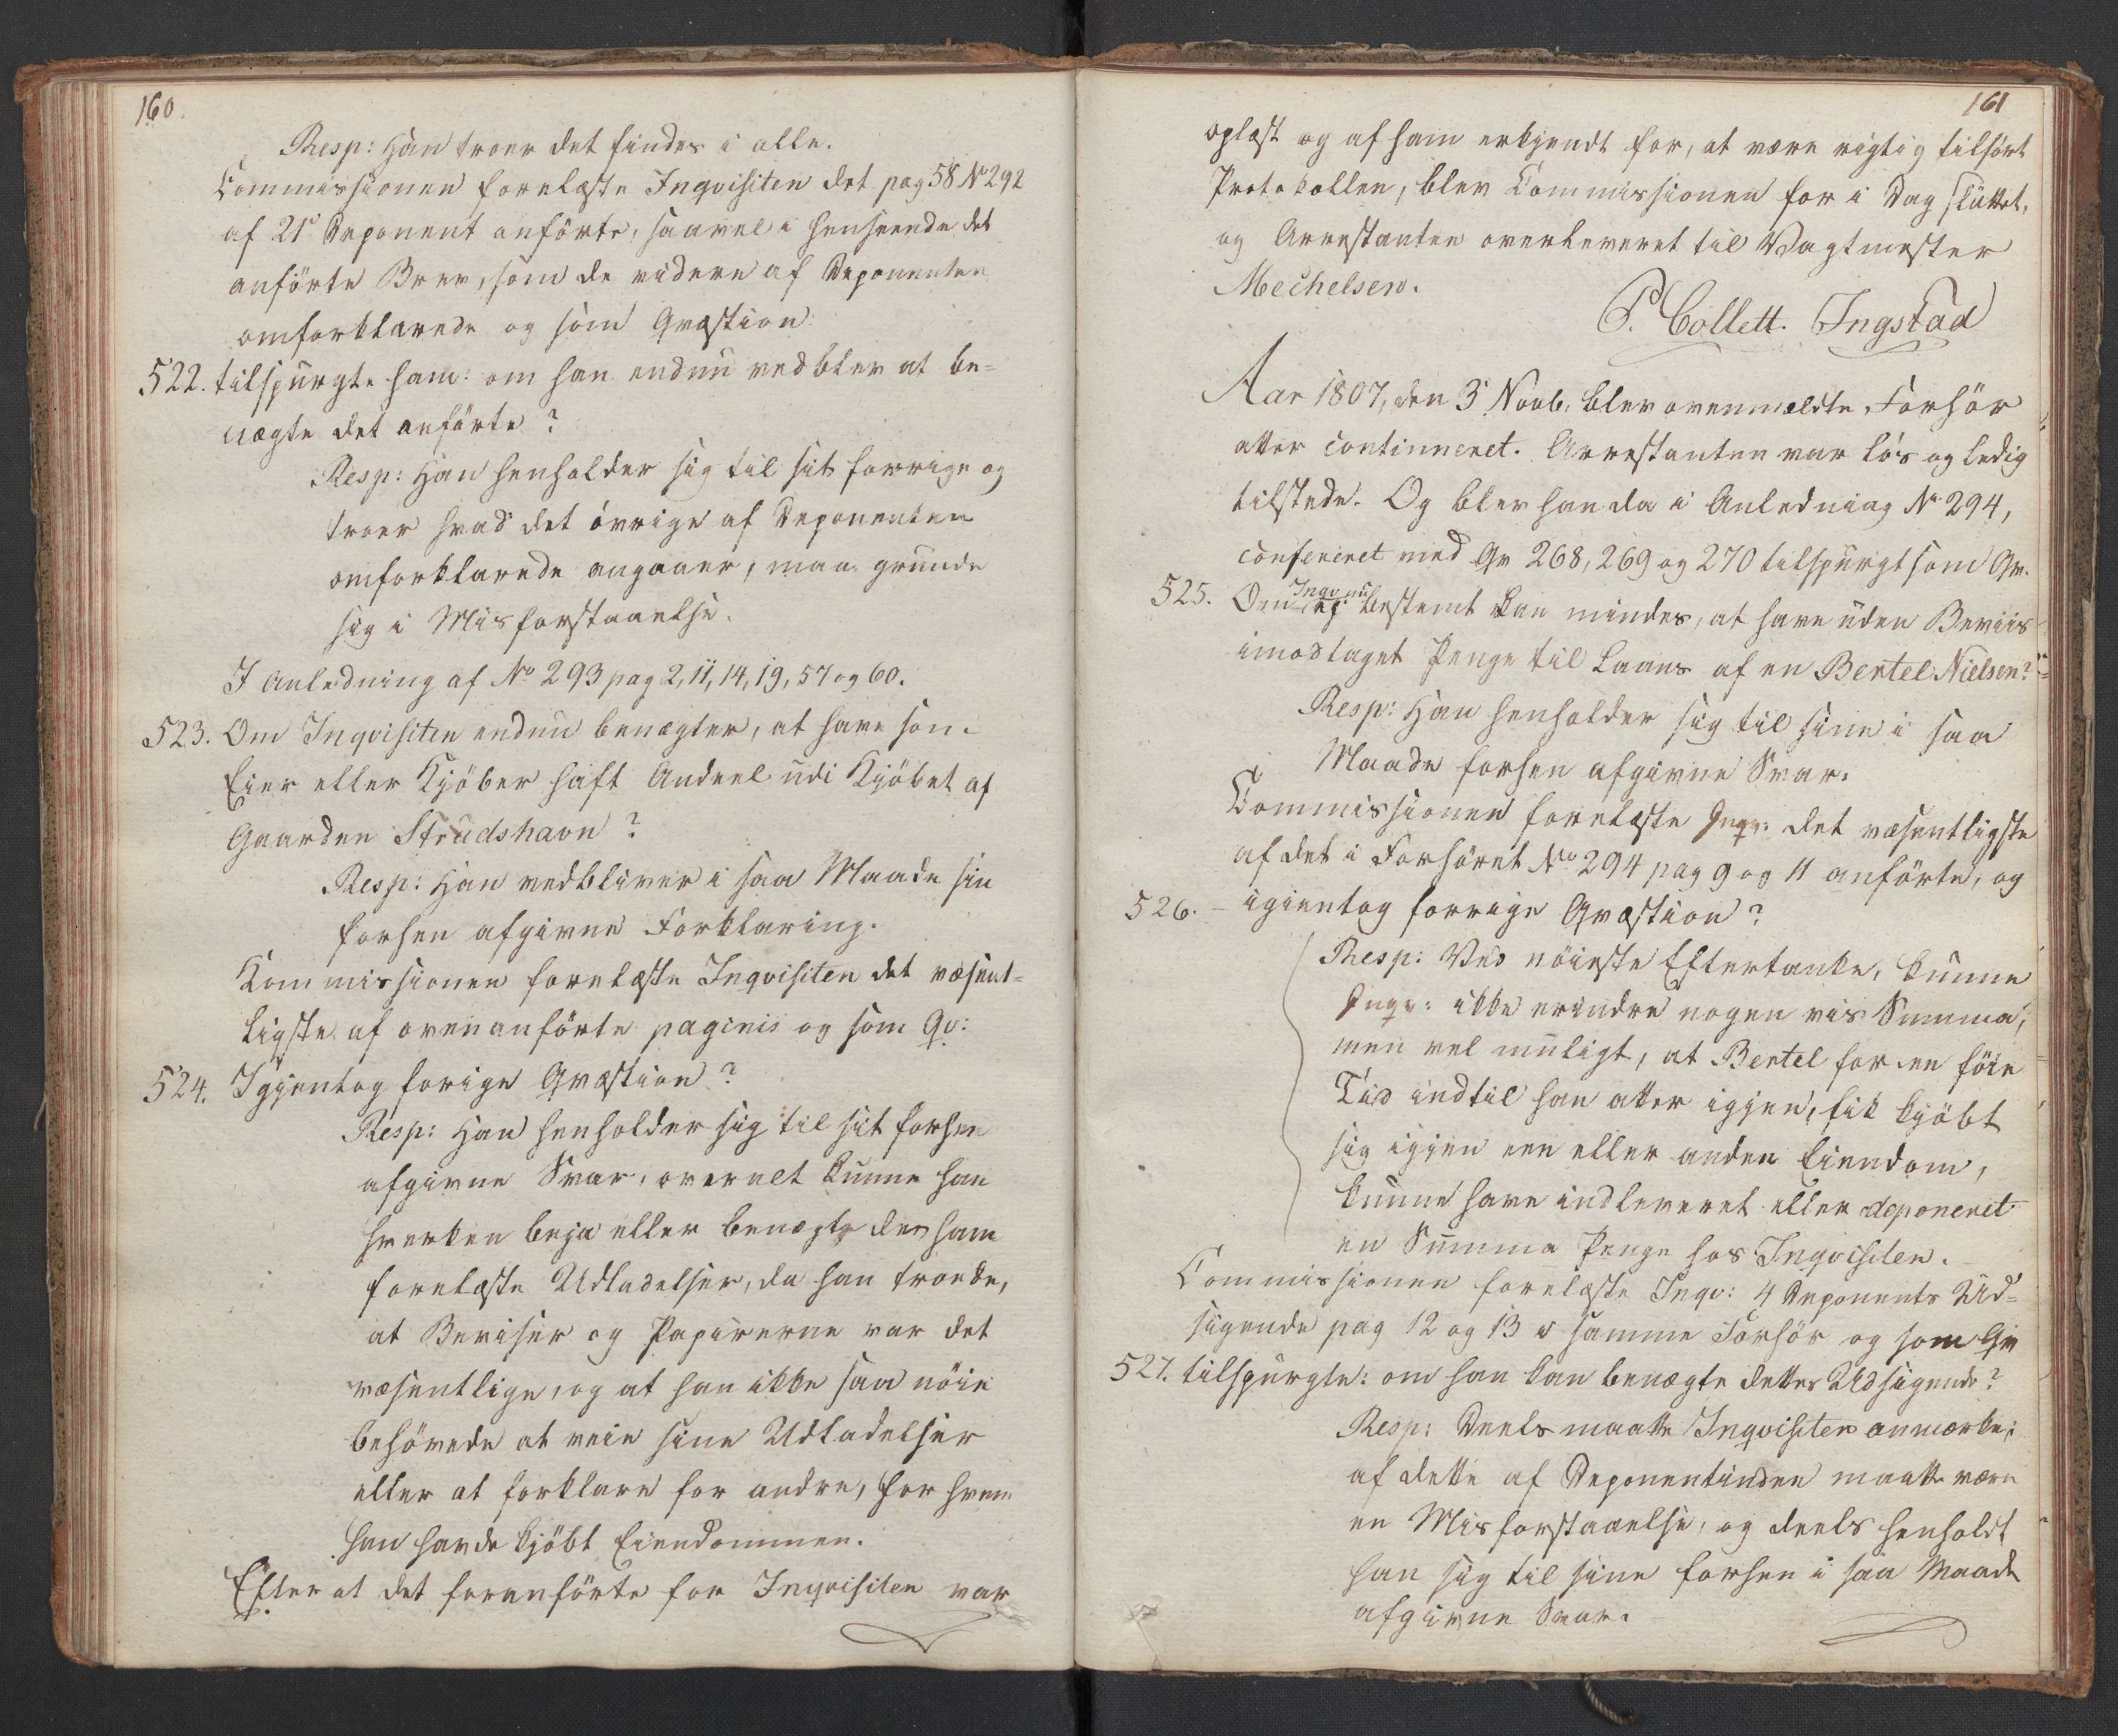 160.
Resp: Han troer det findes i alle.
Commissionen forelæste Inqvisiten det pag 58 No 292
af 21' Deponent anførte, saavel i henseende det
anførte Brev, som de videre af Deponenten
omforklarede og som Qvæstion
522. tilspurgte ham: om han endnu vedblev at be=
nægte det anførte?
Resp: Han henholder sig til sit forrige og
troer hvad det øvrige af Deponenten
omforklarede angaaer, maa grunde
sig i Misforstaaelse.
I Anledning af No 293 pag 2, 11, 14, 19, 57 og 60.
523. Om Inqvisiten endnu benægter, at have som
Eier eller Kjøber haft Andeel udi Kjøbet af
Gaarden Strudshavn?
Resp: Han vedbliver i saa Maade sin
forhen afgivne Forklaring.
Kommissionen forelæste Inqvisiten det væsent=
ligste af ovenanførte paginis og som Qv:
524. Igjentog forige Qvæstion?
Resp: Han henholder sig til sit forhen
afgivne Svar, overalt kunne han
hverken beja eller benægte des ham
forelæste Udladelser, da han troede,
at Beviser og Papirerne var det
væsentlige, og at han ikke saa nøie
behøvede at veie sine Udladelser
eller at forklare for andre, for hvem
han havde kjøbt Eiendommen.
Efter at det foranførte for Inqvisiten var
161
oplæst og af ham erkjendt for, at være rigtig tilført
Protokollen, blev Commissionen for i Dag sluttet,
og Arrestanten overleveret til Vagtmester
Mechelsen.
P. Collett. Ingstad
Aar 1807, den 3' Novb. blev ovenmældte Forhør
atter continueret. Arrestanten var løs og ledig
tilstede. Og blev han da i Anledning No 294,
confereret med Qv 268, 269 og 270 tilspurgt som Qv.
525. Om Inqv nu ej bestemt kan mindes, at have uden Beviis
imodtaget Penge til Laans af en Bertel Nielsen?
Resp: Han henholder sig til sine i saa
Maade forhen afgivne Svar.
Commissionen forelæste Inqv: det væsentligste
af det i Forhøret No 294 pag 9 og 11 anførte, og
526. – igientog forrige Qvæstion?
Resp: Ved nøieste Eftertanke, kunne
Inqv: ikke erindre nogen vis Summa,
men vel muligt, at Bertel for en føie
Tid indtil han atter igjen, fik kjøbt
sig igjen een eller anden Eiendom,
kunne have indleveret eller deponeret
en Summa Penge hos Inqvisiten.
Commissionen forelæste Inqv: 4 Deponents Ud=
sigende pag 12 og 13 i samme Forhør og som Qv
527. tilspurgte: om han kan benægte dettes Udsigende?
Resp: Deels maatte Inqvisiten anmærke,
af dette af Deponentinden maatte være
en Misforstaaelse, og deels henholdt
han sig til sine forhen i saa Maade
afgivne Svar.